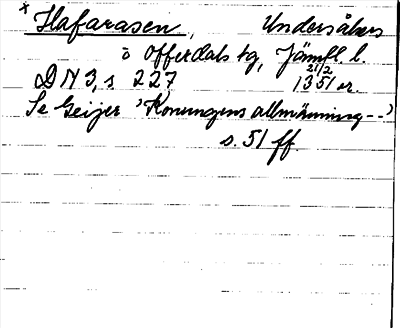 * Hafarasen, Undersåkers
o Offerdals tg, Jämtl. l.
DN 3, s 227 21/2 1351 or.
Se Geijer "Konungens allmänning--"
s. 51 ff.